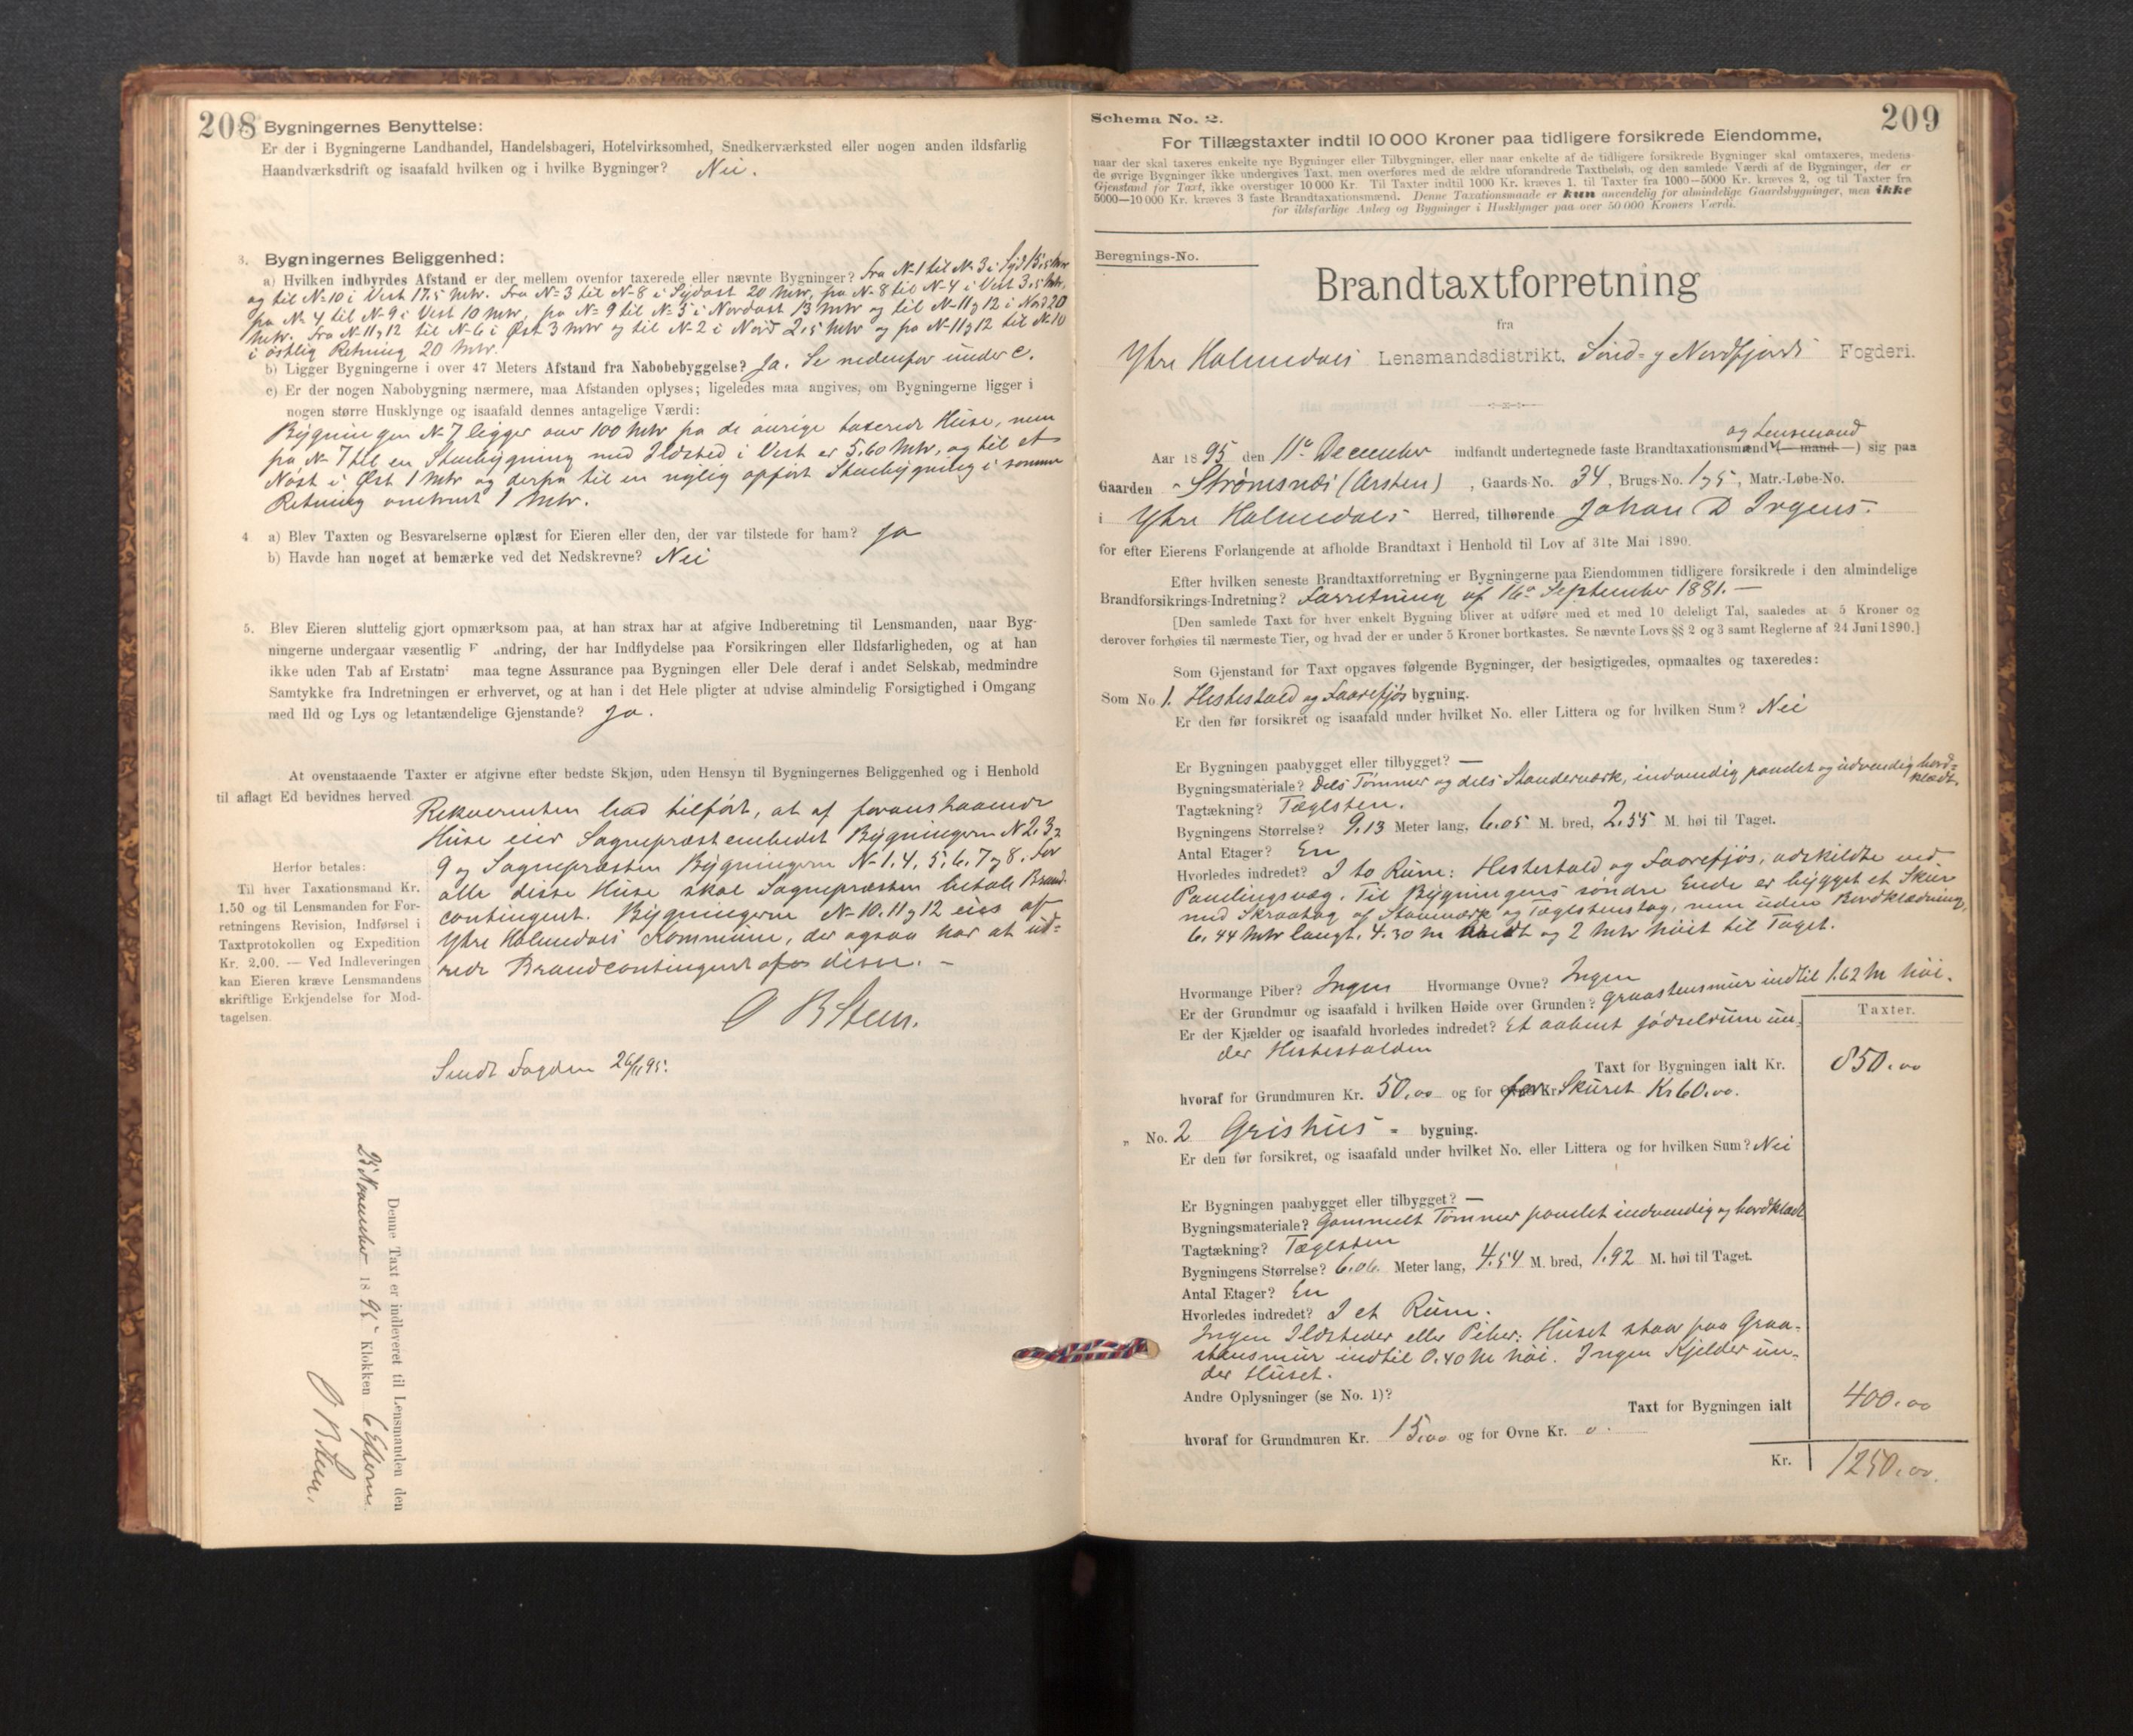 208
Bygningernes Benyttelse:
Er der i Bygningerne Landhandel, Handelsbageri, Hotelvirksomhed, Snedkerværksted eller nogen anden ildsfarlig
Haandværksdrift og isaafald hvilken og i hvilke Bygninger? Nei.
3. Bygningernes Beliggenhed:
a) Hvilken indbyrdes Afstand er der mellem ovenfor taxerede eller nævnte Bygninger? Fra No 1 til No 3 i Syd 15,5 Mtr
og til No 10 i Vest 17,5 Mtr. Fra No 3 til No 8 i Sydost 20 Mtr, fra No 8 til No 4 i Vest 3,5 Mtr,
fra No 4 til No 9 i Vest 10 Mtr, fra No 9 til No 5 i Nordost 13 Mtr og til No 11 og 12 i Nord 20
Mtr. Fra No 11 og 12 til No 6 i Øst 3 Mtr og til No 2 i Nord 2,5 Mtr og fra No 11 og 12 til No 10
i østlig Retning 20 Mtr.
b) Ligger Bygningerne i over 47 Meters Afstand fra Nabobebyggelse? Ja. Se nedenfor under c.
c) Er der nogen Nabobygning nærmere, maa Afstanden oplyses; ligeledes maa angives, om Bygningerne ligger i
nogen større Husklynge og isaafald dennes antagelige Værdi:
Bygningen No 7 ligger over 100 Mtr fra de øvrige taxerede Huse, men
fra No 7 til en Stuebygning med Ildsted i Vest er 5,60 Mtr, og til et
Nøst i Øst 1 Mtr og derfra til en nylig opført Stuebygning i samme
Retning omtrent 1 Mtr.
4. a) Blev Taxten og Besvarelserne oplæst for Eieren eller den, der var tilstede for ham? Ja
b) Havde han noget at bemærke ved det Nedskrevne? Nei
5. Blev Eieren sluttelig gjort opmærksom paa, at han strax har at afgive Indberetning til Lensmanden, naar Byg-
ningerne undergaar væsentlig F andring, der har Indflydelse paa Forsikringen eller Ildsfarligheden, og at han
ikke uden Tab af Erstatni maa tegne Assurance paa Bygningen eller Dele deraf i andet Selskab, medmindre
Samtykke fra Indretningen er erhvervet, og at han i det Hele pligter at udvise almindelig Forsigtighed i Omgang
med Ild og Lys og letantændelige Gjenstande? Ja.
At ovenstaaende Taxter er afgivne efter bedste Skjøn, uden Hensyn til Bygningernes Beliggenhed og i Henhold
til aflagt Ed bevidnes herved
Rekvirenten lod tilført, at af foranstaaende
Huse eier Sognepræstembedet Bygningerne No 2, 3 og
9 og Sognepræsten Bygningerne No 1, 4, 5, 6, 7 og 8. For
alle disse Huse skal Sognepræsten betale Brand-
contingent. Bygningerne No 10, 11 og 12 eies af
Ytre Holmedals Kommune, der ogsaa har at ud-
rede Brandcontingent af disse. –
O B Steen.
Sendt Fogden 26/11 95.
Herfor betales:
Til hver Taxationsmand Kr.
1.50 og til Lensmanden for For-
retningens Revision, Indførsel i
Taxtprotokollen og Expedition
Kr. 2,00. — Ved Indleveringen
kan Eieren kræve Lensmandens
skriftlige Erkjendelse for Mod-
tagelsen.
Denne Taxt er indleveret til Lensmanden den
25 November 1895 Klokken 6 Efterm.
O B Steen.
209
Schema No. 2.
For Tillægstaxter indtil 10 000 Kroner paa tidligere forsikrede Eiendomme,
naar der skal taxeres enkelte nye Bygninger eller Tilbygninger, eller naar enkelte af de tidligere forsikrede Bygninger skal omtaxeres, medens
de øvrige Bygninger ikke undergives Taxt, men overføres med de ældre uforandrede Taxtbeløb, og den samlede Værdi af de Bygninger, der er
Gjenstand for Taxt, ikke overstiger 10 000 Kr. Til Taxter indtil 1000 Kr. kræves 1, til Taxter fra 1000—5000 Kr. kræves 2, og til Taxter fra
5000—10 000 Kr. kræves 3 faste Brandtaxationsmænd. Denne Taxationsmaade er kun anvendelig for almindelige Gaardsbygninger, men ikke
for ildsfarlige Anlæg og Bygninger i Husklynger paa over 50 000 Kroners Værdi.
Beregnings-No.
Brandtaxtforretning
fra
Ytre Holmedals Lensmandsdistrikt, Sønd- og Nordfjords Fogderi.
og Lensmand
Aar 1895 den 11te December indfandt undertegnede faste Brandtaxationsmænd (— mand —) sig paa
Gaarden Strømsnæs (Arsten), Gaards-No. 34, Brugs-No. 1 og 5, Matr.-Løbe-No.
i Ytre Holmedals Herred, tilhørende Johan D Irgens
for efter Eierens Forlangende at afholde Brandtaxt i Henhold til Lov af 31te Mai 1890.
Efter hvilken seneste Brandtaxtforretning er Bygningerne paa Eiendommen tidligere forsikrede i den almindelige
Brandforsikrings-Indretning? Forretning af 16de September 1881. —
[Den samlede Taxt for hver enkelt Bygning bliver at udføre med et med 10 deleligt Tal, saaledes at 5 Kroner og
derover forhøies til nærmeste Tier, og hvad der er under 5 Kroner bortkastes. Se nævnte Lovs §§ 2 og 3 samt Reglerne af 24 Juni 1890.]
Som Gjenstand for Taxt opgaves følgende Bygninger, der besigtigedes, opmaaltes og taxeredes:
Som No 1. Hestestald og Faarefjøs bygning.
Er den før forsikret og isaafald under hvilket No. eller Littera og for hvilken Sum? Nei
Er Bygningen paabygget eller tilbygget? —
Bygningsmateriale? Dels Tømmer og dels Standerværk, indvendig panelet og udvendig bord-
klædt.
Tagtækning? Tæglsten.
Bygningens Størrelse? 9,13 Meter lang, 6,05 M. bred, 2,55 M. høi til Taget.
Antal Etager? En
Hvorledes indredet? I to Rum: Hestestald og Faarefjøs, adskildte ved
Panelingsvæg. Til Bygningens søndre Ende er bygget et Skur
med Skraatag af Stavværk og Tæglstenstag, men uden Bordklædning,
6,44 Mtr langt, 4,30 M bredt og 2 Mtr høit til Taget.
Hvormange Piber? Ingen Hvormange Ovne? Ingen
Er der Grundmur og isaafald i hvilken Høide over Grunden? Graastensmur indtil 1,62 M høi.
Er der Kjælder og isaafald hvorledes indredet? Et aabent Gjødselrum un-
der Hestestalden
Taxter.
Taxt for Bygningen ialt Kr. 850,00
hvoraf for Grundmuren Kr. 50,00 og for Skuret Kr 60,00.
„ No. 2 Grishus - bygning.
Er den før forsikret, og isaafald under hvilket No. eller Littera og for hvilken Sum? Nei
Er Bygningen paabygget eller tilbygget? —
Bygningsmateriale? Gammelt Tømmer panelet indvendig og bordklædt
Tagtækning? Tæglsten
Bygningens Størrelse? 6,06 Meter lang, 4,54 M. bred, 1,92 M. høi til Taget.
Antal Etager? En
Hvorledes indredet? I et Rum.
Ingen Ildsteder eller Piber. Huset staar paa Graa-
stensmur indtil 0,40 M høi. Ingen Kjelder un-
der Huset.
Andre Oplysninger (se No. 1)?
Taxt for Bygningen ialt 400,00
hvoraf for Grundmuren Kr. 15,00 og for Ovne Kr. 0.
Kr. 1250,00.